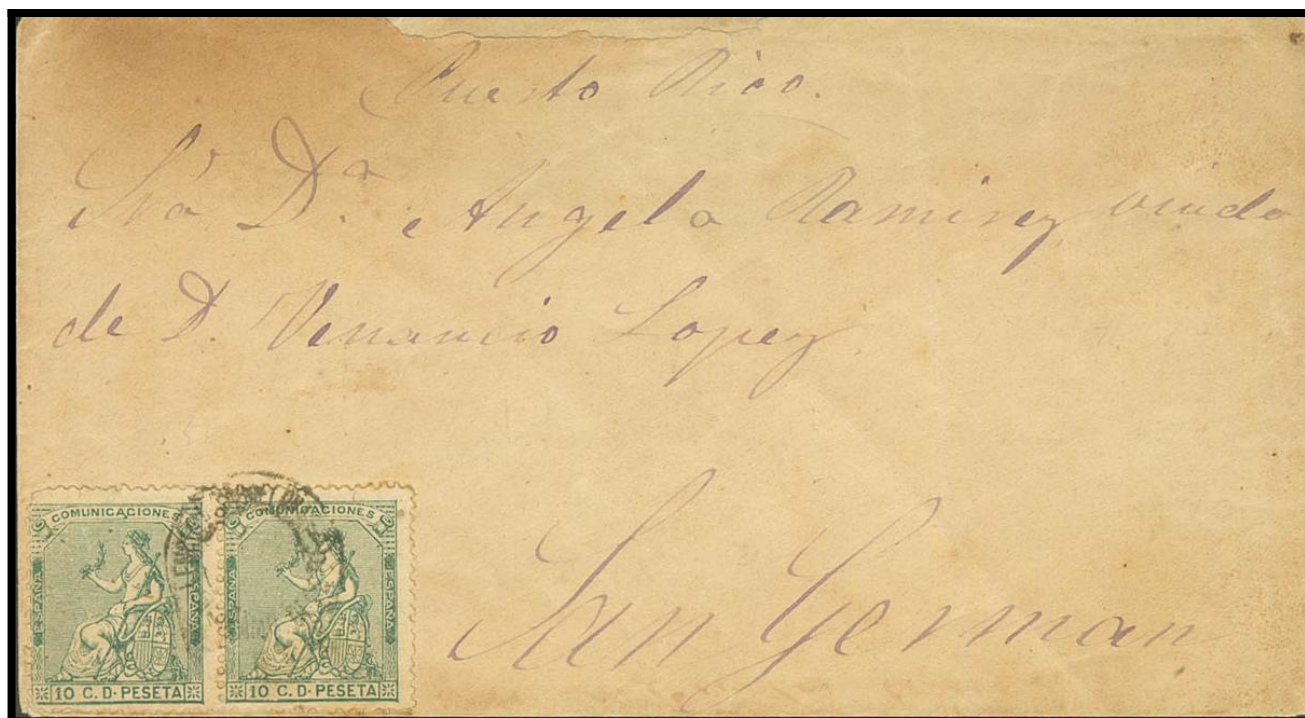 Puerto Rico.
Sra Dª Angela Ramirez viuda
de D. Venancio Lopez
San German
COMUNICACIONES
ESPAÑA
ESPAÑA
10 C. D. PESETA
COMUNICACIONES
ESPAÑA
ESPAÑA
10 C. D. PESETA